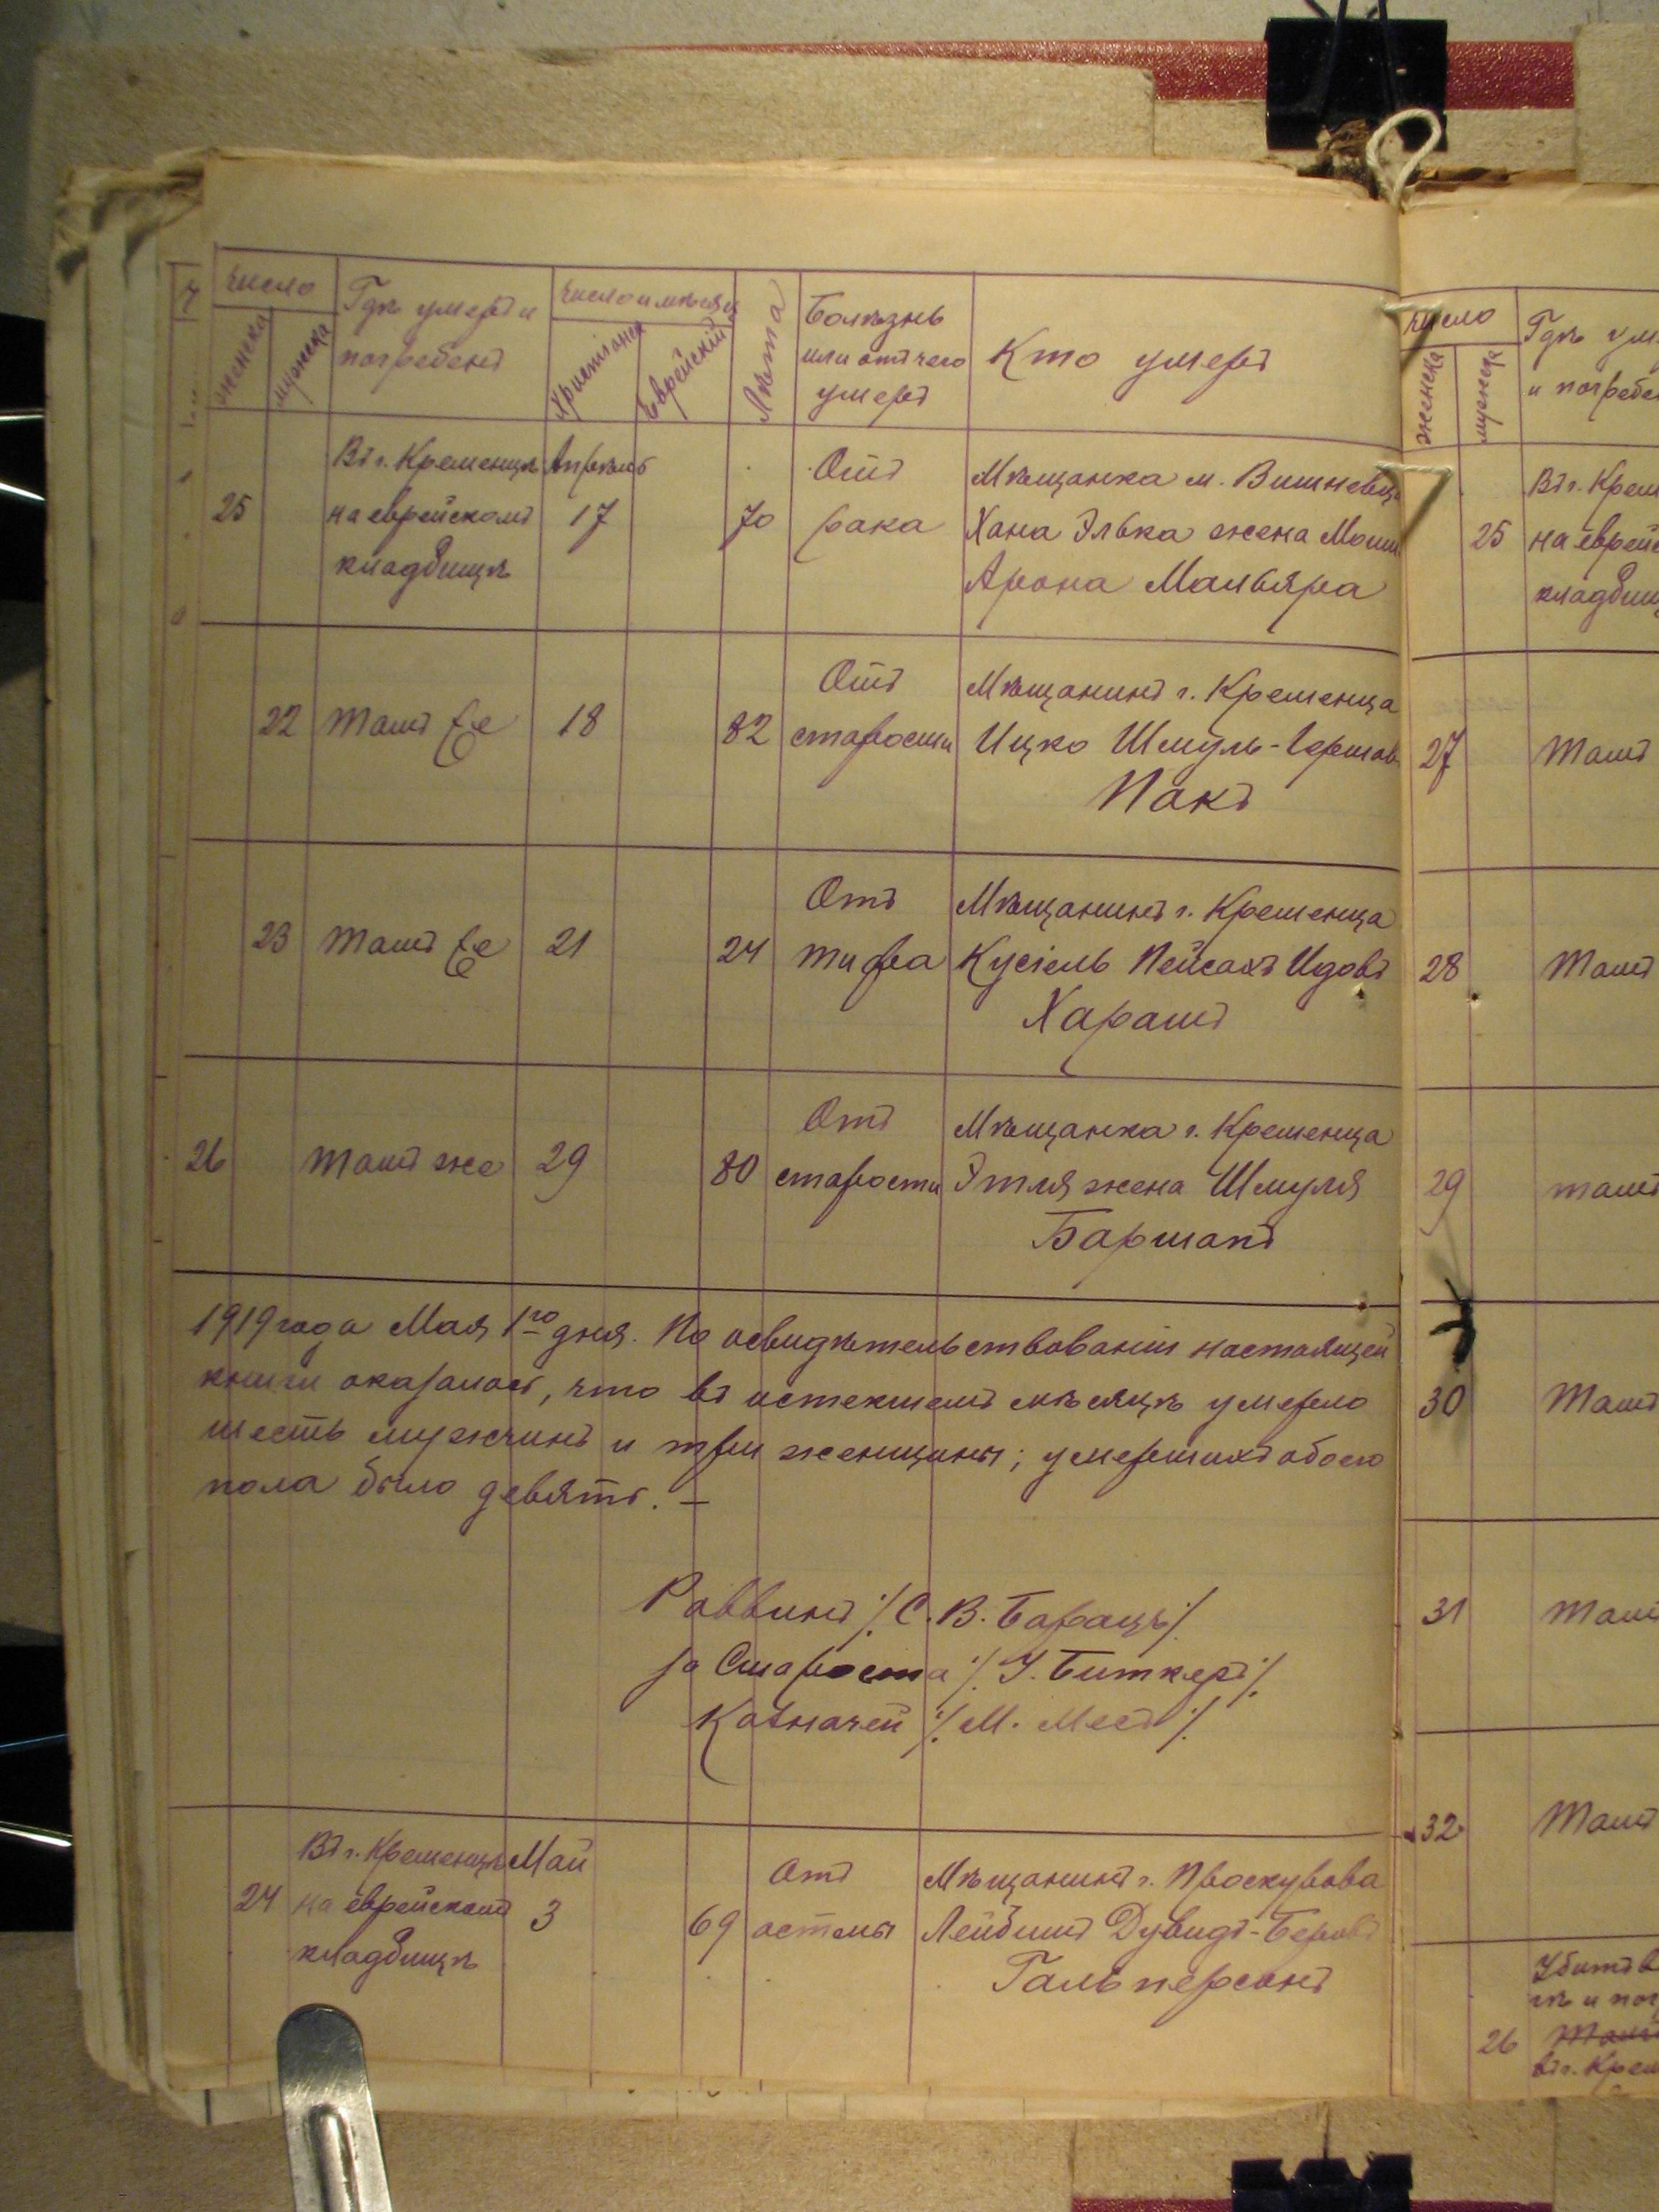 Число
женска
мужска
Гдѣ умеръ и
погребенъ
Число и мѣсяцъ
Христіанск
Еврейскій
Лѣта
Болѣзнь
или отъ чего
умеръ
Кто умеръ
Въ г. Кременцѣ Апрѣль Отъ Мѣщанка м. Вишневца
25 на еврейскомъ 17 70 рака Хана Элька жена Мош
кладбищѣ Арона Маляра
Отъ Мѣщанинъ г. Кременца
22 Тамъ же 18 82 старости Ицко Шмуль-Гершов
Пакъ
Отъ Мѣщанинъ г. Кременца
23 Тамъ же 21 24 тифа Кусіель Пейсахъ Идовъ
Харашъ
Отъ Мѣщанка г. Кременца
26 Тамъ же 29 80 старости Этля жена Шмуля
Баршапъ
1919 года Мая 1го дня. По освидѣтельствованіи настоящей
книги оказалось, что въ истекшемъ мѣсяцѣ умерло
шесть мужчинъ и три женщины; умершихъ обоего
пола было девять. —
Раввинъ /С. В. Барацъ/
за Староста /У. Биткеръ/
Казначей /М. Месъ/
Въ г. Кременцѣ Май Отъ Мѣщанинъ г. Проскурова
24 на еврейскомъ 3 69 астмы Лейбишъ Дувидъ-Беровъ
кладбищѣ Гальперсонъ
Число
женска
мужска
Гдѣ ум
и погребе
Въ г. Крем
25 на еврейс
кладбищ
27 Тамъ
28 Тамъ
29 тамъ
30 Тамъ
31 Тамъ
32 Тамъ
Убитъ в
и пог
26 Тамъ
въ г. Крем